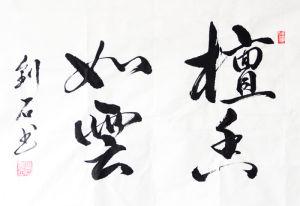 檀香
如雲
利石书